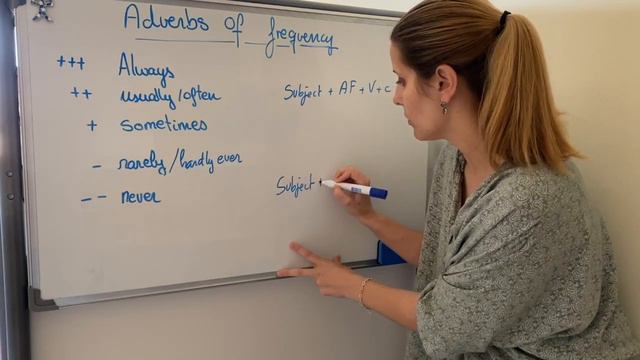 Adverbs of frequency
+++ Always
++ usually/often
+ sometimes
- rarely/hardly ever
-- never
Subject + AF + V + c
Subject +